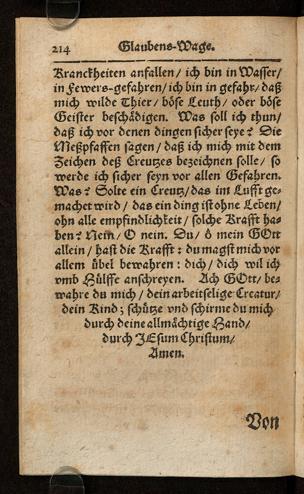 214 Glaubens-Wage.
Kranckheiten anfallen / ich bin in Wasser /
in Fewers-gefahren / ich bin in gefahr / daß
mich wilde Thier / böse Leuth / oder böse
Geister beschädigen. Was soll ich thun /
daß ich vor denen dingen sicher seye? Die
Meßpfaffen sagen / daß ich mich mit dem
Zeichen deß Creutzes bezeichnen solle / so
werde ich sicher seyn vor allen Gefahren.
Was? Solte ein Creutz / das im Lufft ge-
machet wird / das ein ding ist ohne Leben /
ohn alle empfindlichkeit / solche Krafft ha-
ben? Nein / O nein. Du / ô mein GOtt
allein / hast die Krafft: du magst mich vor
allem übel bewahren: dich / dich wil ich
vmb Hülffe anschreyen. Ach GOtt / be-
wahre du mich / dein arbeitselige Creatur /
dein Kind; schütze vnd schirme du mich
durch deine allmächtige Hand /
durch JEsum Christum /
Amen.
Von